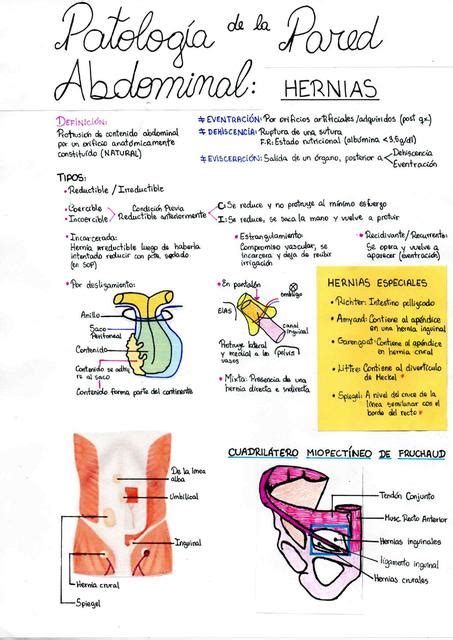 Patología de la Pared
Abdominal: HERNIAS
DEFINICIÓN:
Protrusión de contenido abdominal
por un orificio anatómicamente
constituído (NATURAL)
# EVENTRACIÓN: Por orificios artificiales/adquiridos (post qx)
# DEHISCENCIA: Ruptura de una sutura
F.R: Estado nutricional (albúmina <3,5g/dl)
# EVISCERACIÓN: Salida de un órgano, posterior a
Dehiscencia
Eventración
TIPOS:
• Reductible / Irreductible
• Coercible
• Incoercible
Condición Previa
Reductible anteriormente
C: Se reduce y no protruye al mínimo esfuerzo
I: Se reduce, se saca la mano y vuelve a protruir
• Incarcerada:
Hernia irreductible luego de haberla
intentado reducir con pcte sedado
(en SOP)
• Estrangulamiento:
Compromiso vascular, se
incarcera y deja de recibir
irrigación
• Recidivante/Recurrente:
Se opera y vuelve a
aparecer (eventración)
• Por deslizamiento:
Anillo
Saco
Peritoneal
Contenido
Contenido se adhie
re al saco
Contenido forma parte del continente
• En pantalón
ombligo
EIAS
canal
inguinal
(pelvis)
Protruye lateral
y medial a los
vasos
• Mixta: Presencia de una
hernia directa e indirecta
HERNIAS ESPECIALES
• Richter: Intestino pellizcado
• Amyand: Contiene al apéndice
en una hernia inguinal
• Garengoat: Contiene al apéndice
en hernia crural
• Littre: Contiene al divertículo
de Meckel
• Spiegel: A nivel del cruce de la
línea semilunar con el
borde del recto
De la línea
alba
Umbilical
Inguinal
Hernia crural
Spiegel
CUADRILÁTERO MIOPECTÍNEO DE FRUCHAUD
Tendón Conjunto
Musc. Recto Anterior
Hernias inguinales
ligamento inguinal
Hernias crurales